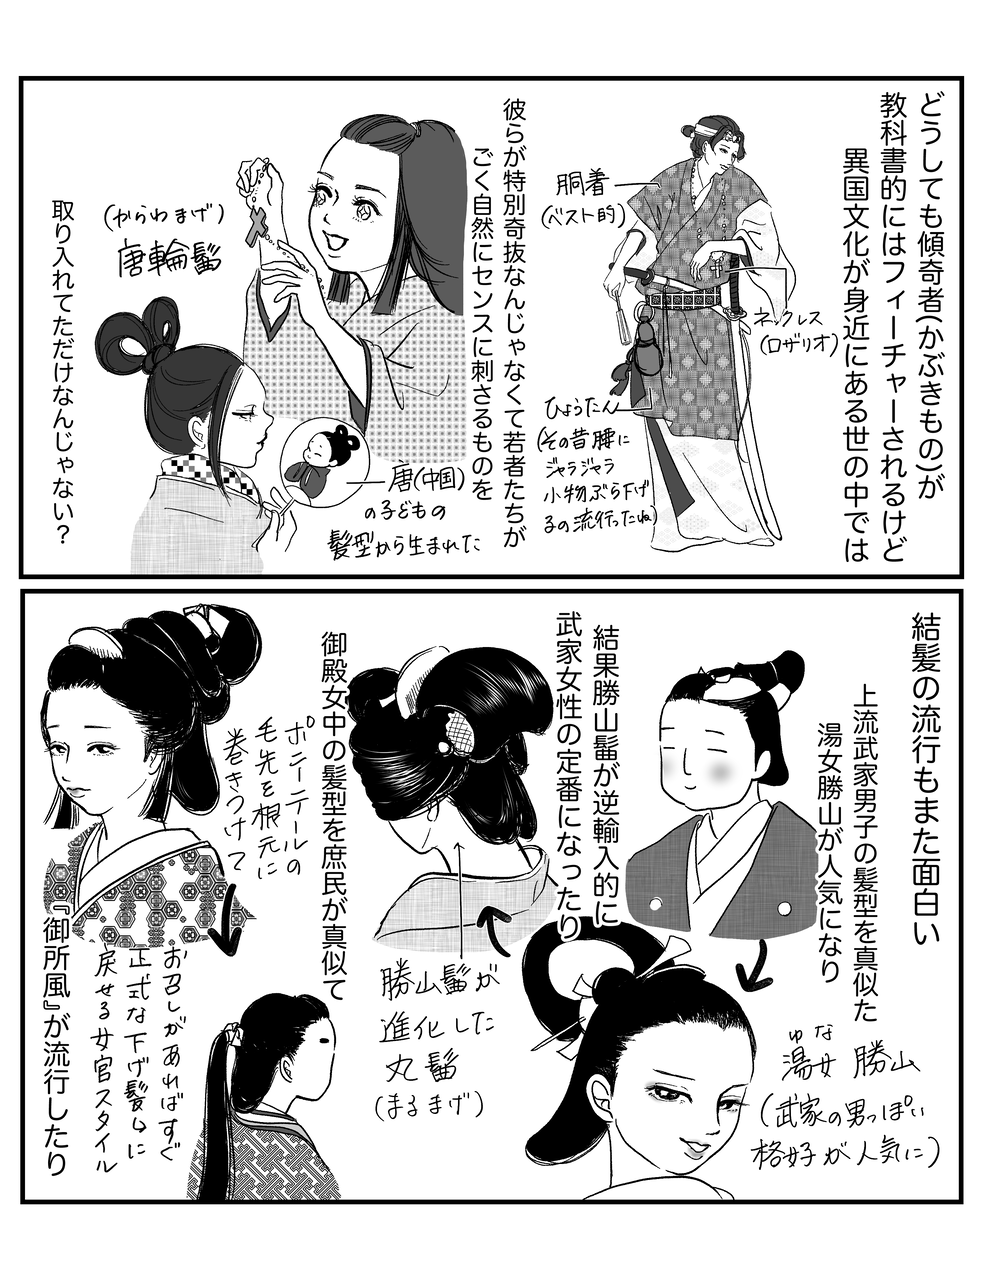 どうしても傾奇者(かぶきもの)が
教科書的にはフィーチャーされるけど
異国文化が身近にある世の中では
胴着
(ベスト的)
ネックレス
(ロザリオ)
ひょうたん
(その昔腰に
ジャラジャラ
小物ぶら下げ
るの流行ったね)
彼らが特別奇抜なんじゃなくて若者たちが
ごく自然にセンスに刺さるものを
(からわまげ)
唐輪髷
唐(中国)
の子どもの
髪型から生まれた
取り入れてただけなんじゃない？
結髪の流行もまた面白い
上流武家男子の髪型を真似た
湯女勝山が人気になり
ゆな
湯女 勝山
(武家の男っぽい
格好が人気に)
結果勝山髷が逆輸入的に
武家女性の定番になったり
勝山髷が
進化した
丸髷
(まるまげ)
御殿女中の髪型を庶民が真似て
ポニーテールの
毛先を根元に
巻きつけて
お召しがあればすぐ
正式な下げ髪に
戻せる女官スタイル
『御所風』が流行したり